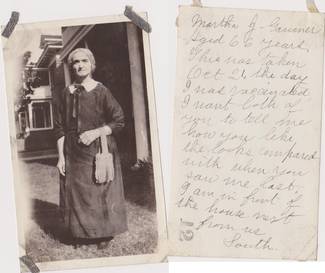 Martha J. Gaumer
Aged 66 years,
This was taken
Oct 21, the day
I was vaccinated
I want both of
you to tell me
how you like
the looks compared
with when you
saw me last.
I am in front of
the house next
from us
South.